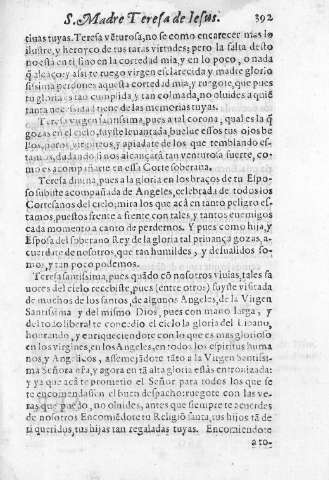 S. Madre Teresa de Iesus. 392
tiuas tuyas. Teresa vēturosa, no se como encarecer mas lo
ilustre, y heroyco de tus raras virtudes; pero la falta desto
no està en ti, sino en la cortedad mia, y en lo poco, o nada
q̃ alcaço: y assi te ruego virgen esclarecida y madre glorio
sissima perdones aquesta cortedad mia, y ruegote, que pues
tu gloria es tan cumplida, y tan colmada, no oluides a quiē
tanta necessidad tiene de las memorias tuyas.
Teresa virgen santissima, pues a tal corona, qual es la q̃
gozas en el cielo, fuyste leuantada, buelue essos tus ojos be
llos, puros, virgineos, y apiadate de los que temblando es-
tamos, dudando si nos alcançarà tan venturosa suerte, co-
mo es acompañarte en essa Corte soberana.
Teresa diuina, pues a la gloria en los braços de tu Espo-
so subiste acompañada de Angeles, celebrada de todos los
Cortesanos del cielo; mira los que acà en tanto peligro es-
tamos, puestos frente a frente con tales, y tantos enemigos
cada momento a canto de perdernos. Y pues como hija, y
Esposa del soberano Rey de la gloria tal priuança gozas, a-
cuerdate de nosotros, que tan humildes, y desualidos so-
mos, y tan poco podemos.
Teresa santissima, pues quādo cō nosotros viuias, tales fa
uores del cielo recebiste, pues (entre otros) fuyste visitada
de muchos de los santos, de algunos Angeles, de la Virgen
Santissima y del mismo Dios, pues con mano larga, y
del todo liberal te concedio el cielo la gloria del Libano,
honrando, y enriqueciendote con lo que es mas glorioso
en los virgines, en los Angeles, en todos los espiritus huma
nos, y Angelicos, assemejādote tāto a la Virgen santissi-
ma Señora ñra, y agora en tā alta gloria estàs entronizada:
y ya que acà te prometio el Señor para todos los que se
te encomendassen el buen despacho: ruegote con las ve-
ras que puedo, no oluides, antes que siempre te acuerdes
de nosotros Encomiēdote tu Religiō santa, tus hijos tā de
ti queridos, tus hijas tan regaladas tuyas. Encomiendote
a to-